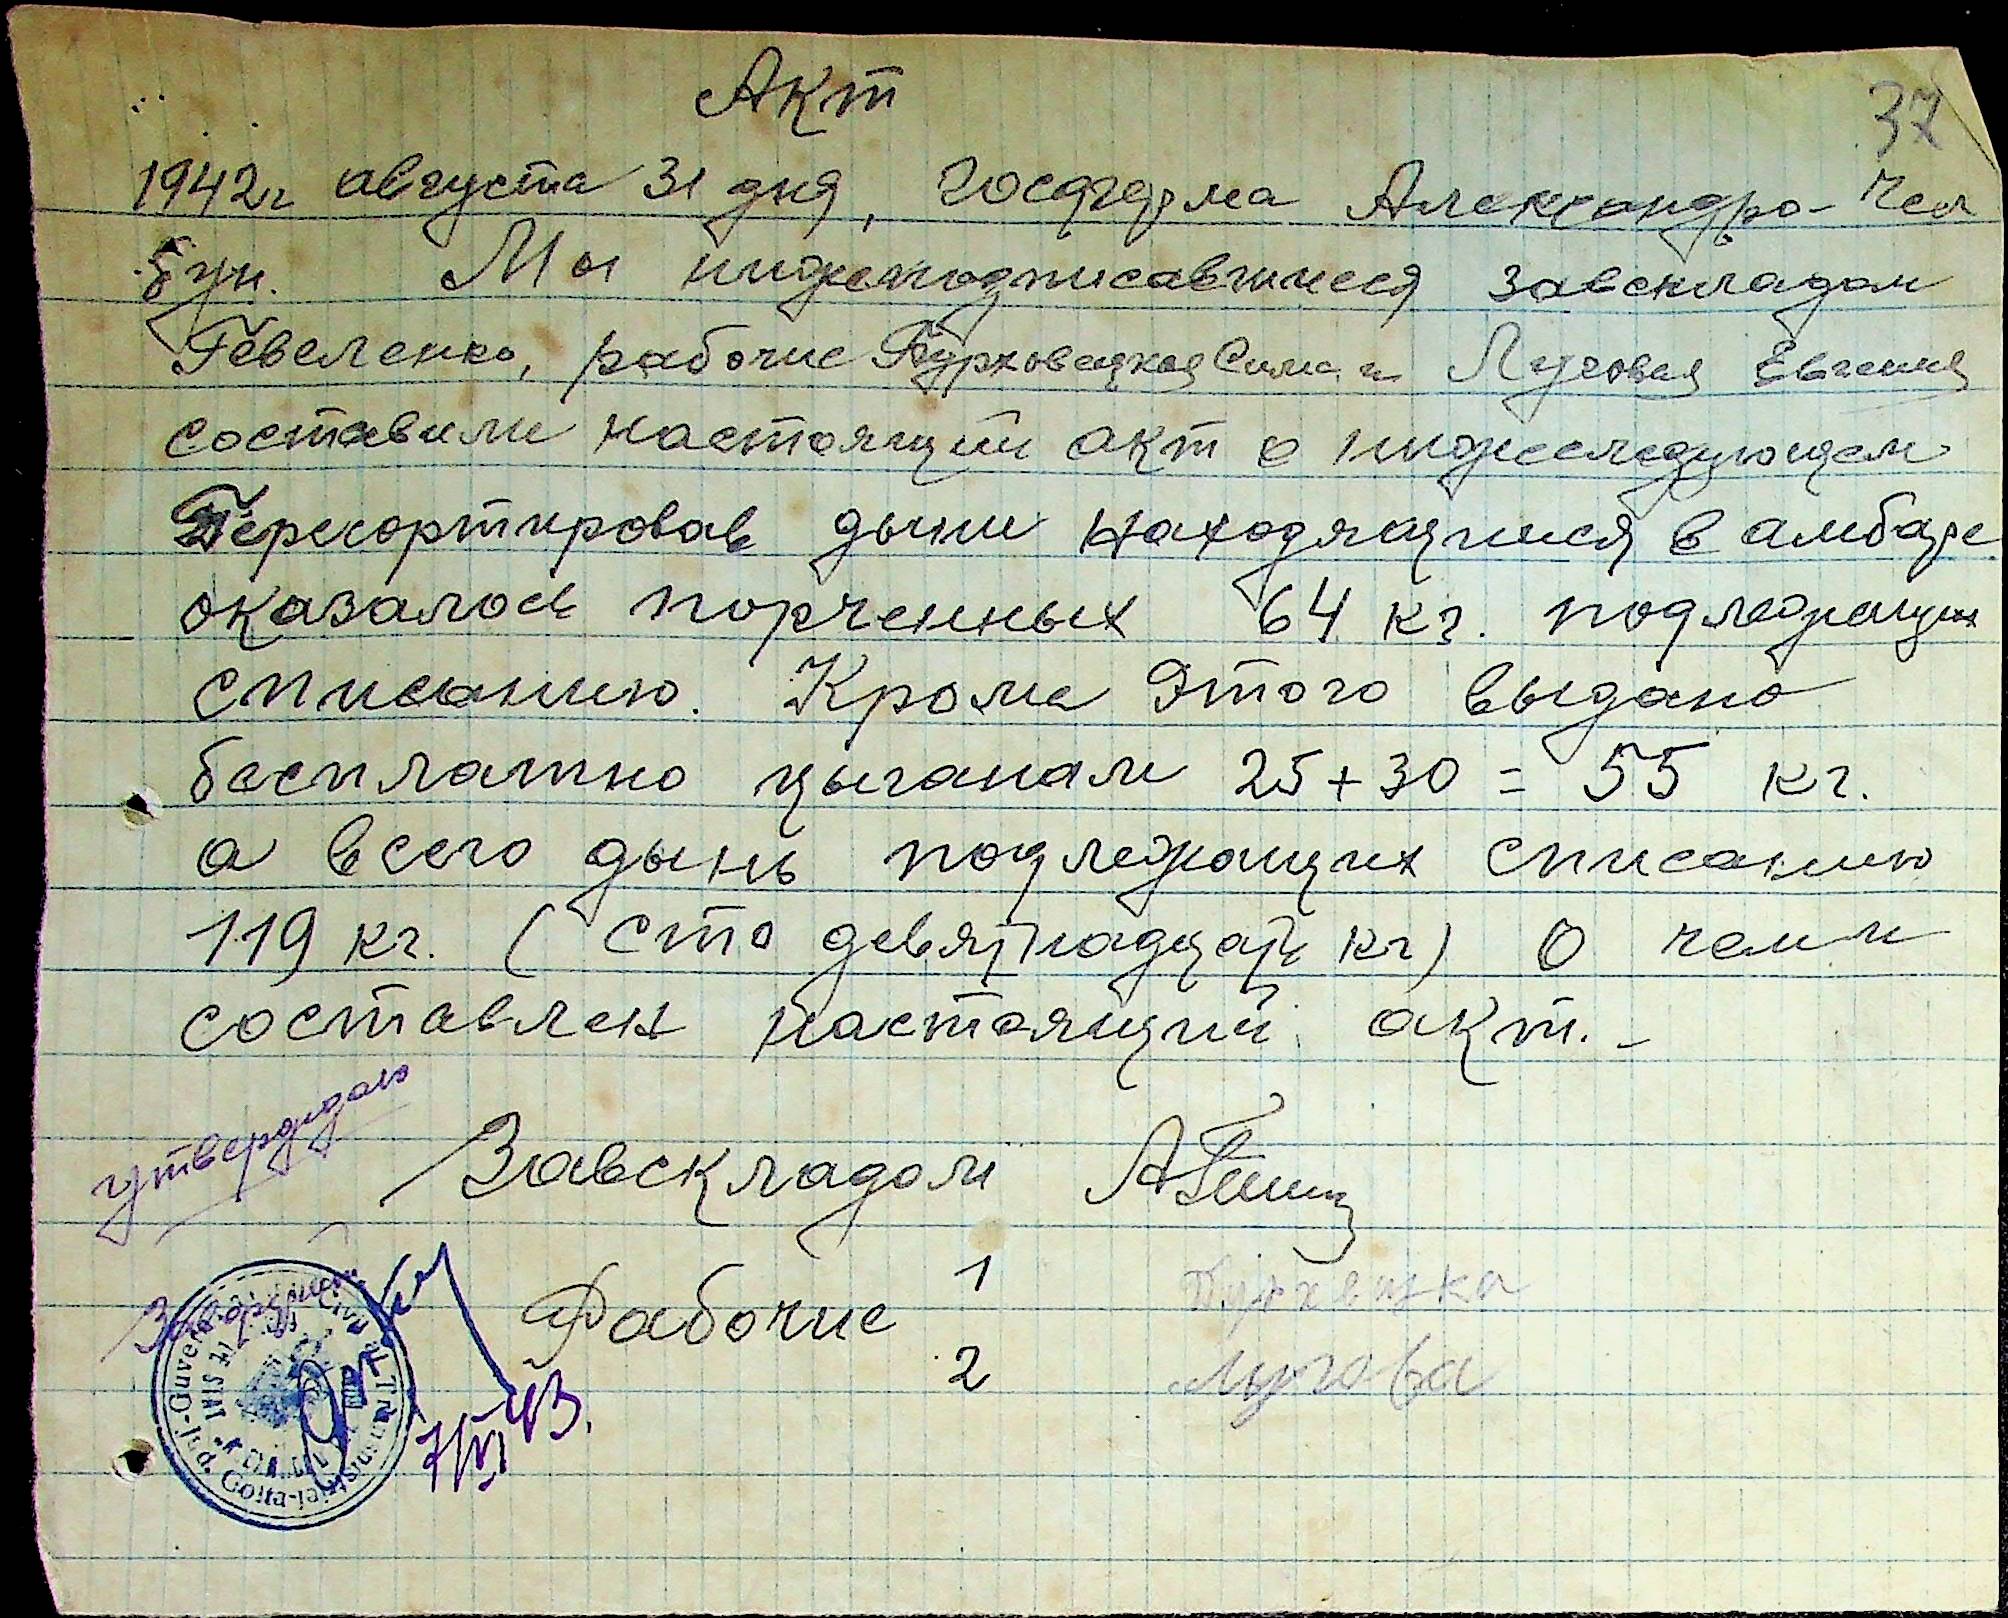 Акт
37
1942г августа 31 дня, Госферма Александро-
Мы нижеподписавшиеся завскладом
рабочие Сима и Луговая Евгения
составили настоящий акт о нижеследующем
Пересортировав дыни находящиися в амбаре
оказалось порченных 64 кг. подлежащих
списанию. Кроме этого выдано
бесплатно цыганам 25+30 = 55 кг.
а всего дынь подлежащих списанию
119 кг. (сто девятнадцать кг) О чем и
составлен настоящий акт.
утверждаю
Завскладом
Рабочие 1
2 Лугова
Guver Transnistriei Jud. Golta